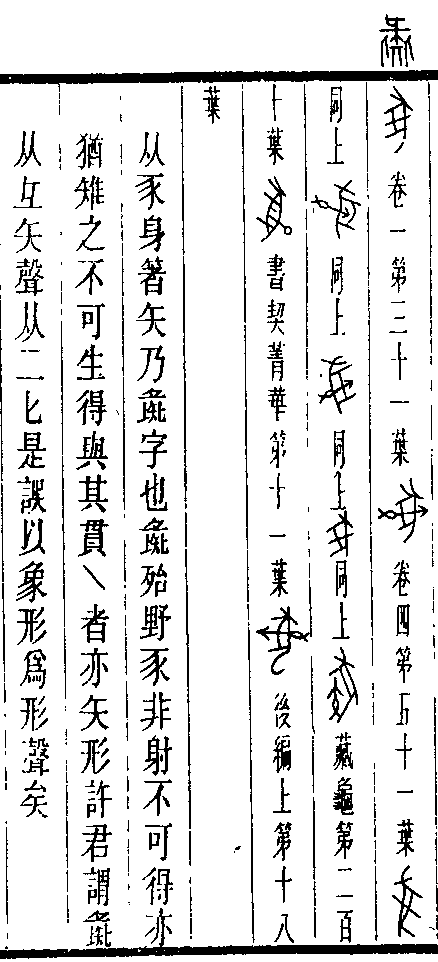 卷一第三十一葉 卷四第五十一葉
同上 同上 同上 同上 藏龜第二百
十葉 書契菁華第十一葉 後編上第十八
葉
从豕身著矢乃彘字也彘殆野豕非射不可得亦
猶雉之不可生得與其貫乀者亦矢形許君謂彘
从彑矢聲从二匕是誤以象形爲形聲矣